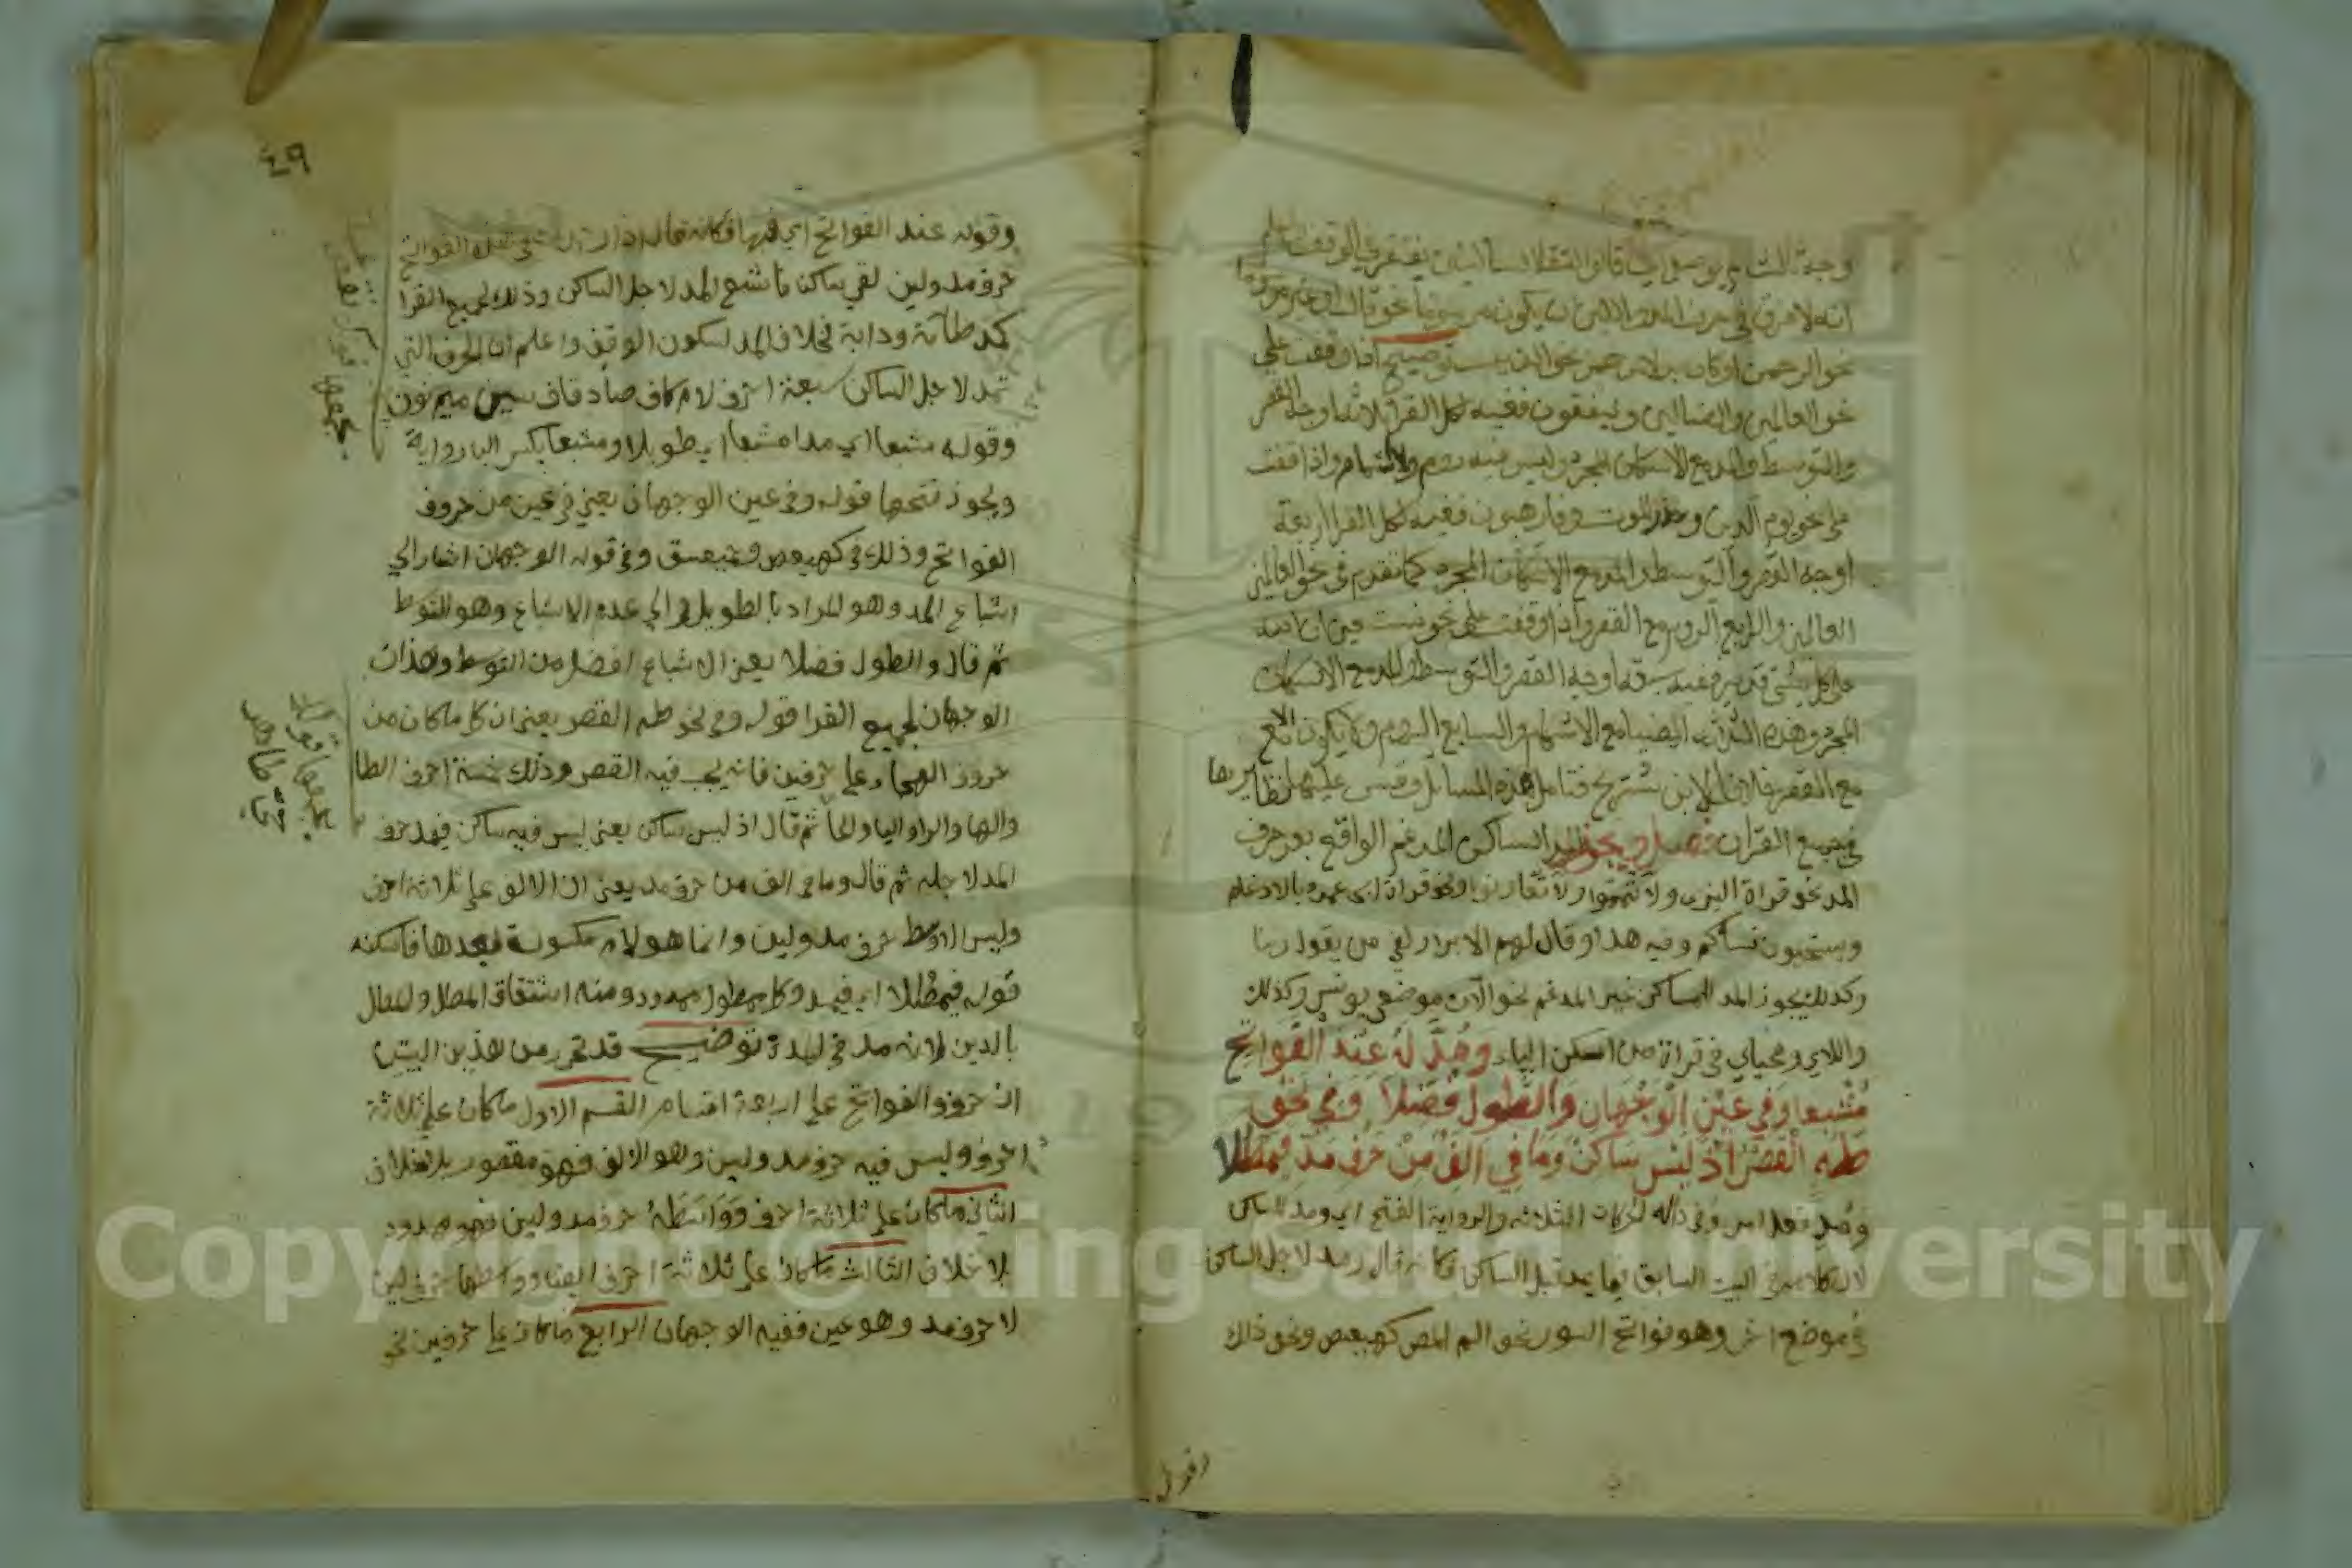 انه لا فرق في حرف المد واللين ان يكون مرسوما نحو قال او غير مرسوم
نحو الرحمن او كان بدلا من همز نحو الذيب توضيح اذا وقفت على
نحو العالمين والضالين وينفقون ففيه لكل القرا ثلاثة اوجه القصر
والتوسط والمد مع الاسكان المجرد وليس فيه روم ولا اشمام واذا وقفت
على نحو يوم الدين وحذر الموت وفارهبون ففيه لكل القرا اربعة
اوجه القصر والتوسط والمد مع الاسكان المجرد كما تقدم في نحو العالمين
العالمين والرابع الروم مع القصر واذا وقفت على نحو نستعين ان الله
على كل شي قدير ففيه سبعة اوجه القصر والتوسط والمد مع الاسكان
المجرد وهذه الثلاثة ايضا مع الاشمام والسابع الروم ولا يكون الا مع
مع القصر خلافا لابن شريح فتامل هذه المسايل وقس عليها نظايرها
في جميع القران فصل ويجوز المد الساكن المدغم الواقع بعد حرف
المد نحو قراة البزي ولا تيمموا ولا تعاونوا ونحو قراة ابي عمرو بالادغام
ويستحيون نساكم وفيه هدا وقال لهم الابرار لفي من يقول ربنا
وكذلك يجوز المد الساكن غير المدغم نحو الآن موضعي يونس وكذلك
واللاي ومحياي في قراة من اسكن الياء وَمُدَّ لَهُ عِنْدَ الفَوَاتِحِ
مُشْبِعا وَفِي عَيْنِ الْوَجْهَانِ وَالطُّولُ فُضِّلَا وَفِي نَحْوِ
طَهَ الْقَصْرُ اذْ لَيْسَ سَاكِنٌ وَمَا فِي الِفْ مِنْ حَرْفِ مَدٍّ فَيُمْطَلَا
ومد فعل امر وفي داله الحركات الثلاثة والرواية الفتح اي ومد للساكن
لان كلامه في البيت السابق فيما يمد قبل الساكن فكانه قال ومد لاجل الساكن
في موضع اخر وهو فواتح السور نحو الم المص كهيعص ونحو ذلك
وقول
٤٩
وقوله عند الفواتح اي فيها فكانه قال اذا
حرف مد ولين لقي ساكنا فاشبع المد لاجل الساكن وذلك لجميع القرا
كمد طآمة ودابة بخلاف المد لسكون الوقف واعلم ان الحرف التي
تمد لاجل الساكن سبعة احرف لام كاف صاد قاف سين ميم نون
وقوله مشبعا اي مدا مشبعا اي طويلا ومشبعا بكسر البا رواية
ويجوز فتحها قوله وفي عين الوجهان يعني في عين من حروف
الفواتح وذلك في كهيعص وحمعسق وفي قوله الوجهان اشار الي
اشباع المد وهو المراد بالطويل والي عدم الاشباع وهو التوسط
ثم قال والطول فضلا يعني الاشباع افضل من التوسط وهذان
الوجهان لجميع القرا قوله وفي نحو طه القصر يعني ان كل ما كان من
حروف الهجاء علي حرفين فانه يجب فيه القصر وذلك خمسة احرف الطا
والها والرا واليا والحا ثم قال اذ ليس ساكن يعني ليس فيه ساكن فيمد حرف
المد لاجله ثم قال وما في الف من حرف مد يعني ان الالف علي ثلاثة احرف
وليس الاوسط حرف مد ولين وانما هو لام مكسورة بعدها فا ساكنه
قوله فيمطلا اي فيمد وكل ممطول ممدود ومنه اشتقاق المطل والمطال
بالدين لانه مد في المدة توضيح قد تحرر من هذين البيتين
ان حروف الفواتح علي اربعة اقسام القسم الاول ما كان علي ثلاثة
احرف وليس فيه حرف مد ولين وهو الالف فهو مقصور بلا خلاف
الثاني ما كان علي ثلاثة احرف ووَاسَطَهُ حرف مد ولين فهو ممدود
بلا خلاف الثالث ما كان علي ثلاثة احرف ايضا ووسطها حرف لين
لا حرف مد وهو عين ففيه الوجهان الرابع ما كان علي حرفين نحو
Copyright © King Saud University